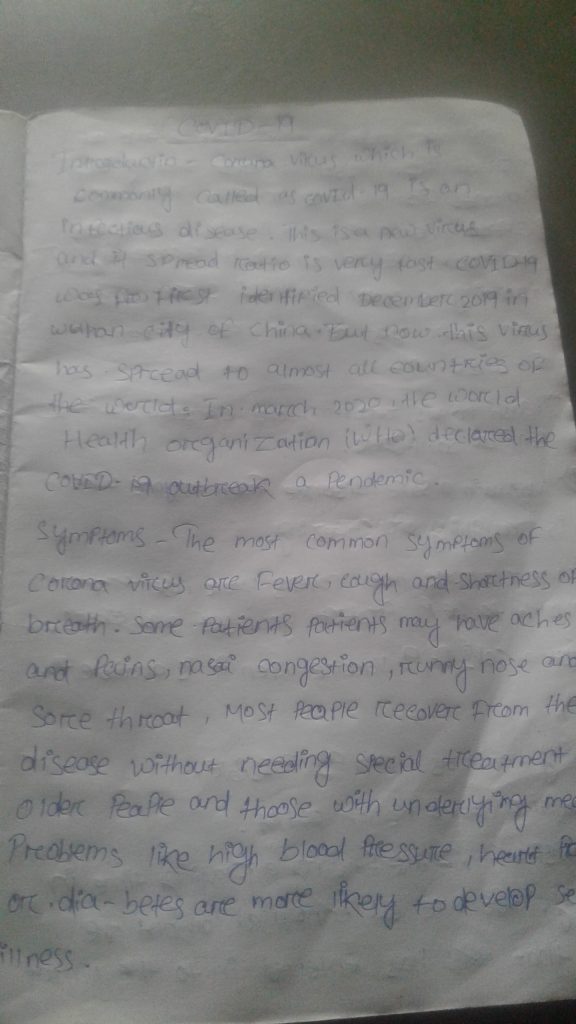 COVID-19
Introductin - Corona virus which is
commonly called as covid-19 is an
infectious disease. This is a new virus
and it spread ratio is very fast COVID-19
was first identified December 2019 in
wuhan city of China. But now this virus
has spread to almost all countries of
the world. In march 2020, the world
Health organization (WHO) declared the
COVID-19 outbreak a Pendemic.
Symptoms - The most common symptoms of
Corona virus are Fever, cough and shortness of
breath. Some Patients Patients may have aches
and Pains, nasai congestion, runny nose and
Sore throat, Most People recover From the
disease without needing special treatment
Older People and thoose with underlying
Problems like high blood Pressure, heart
or dia-betes are more likely to develop se
illness.